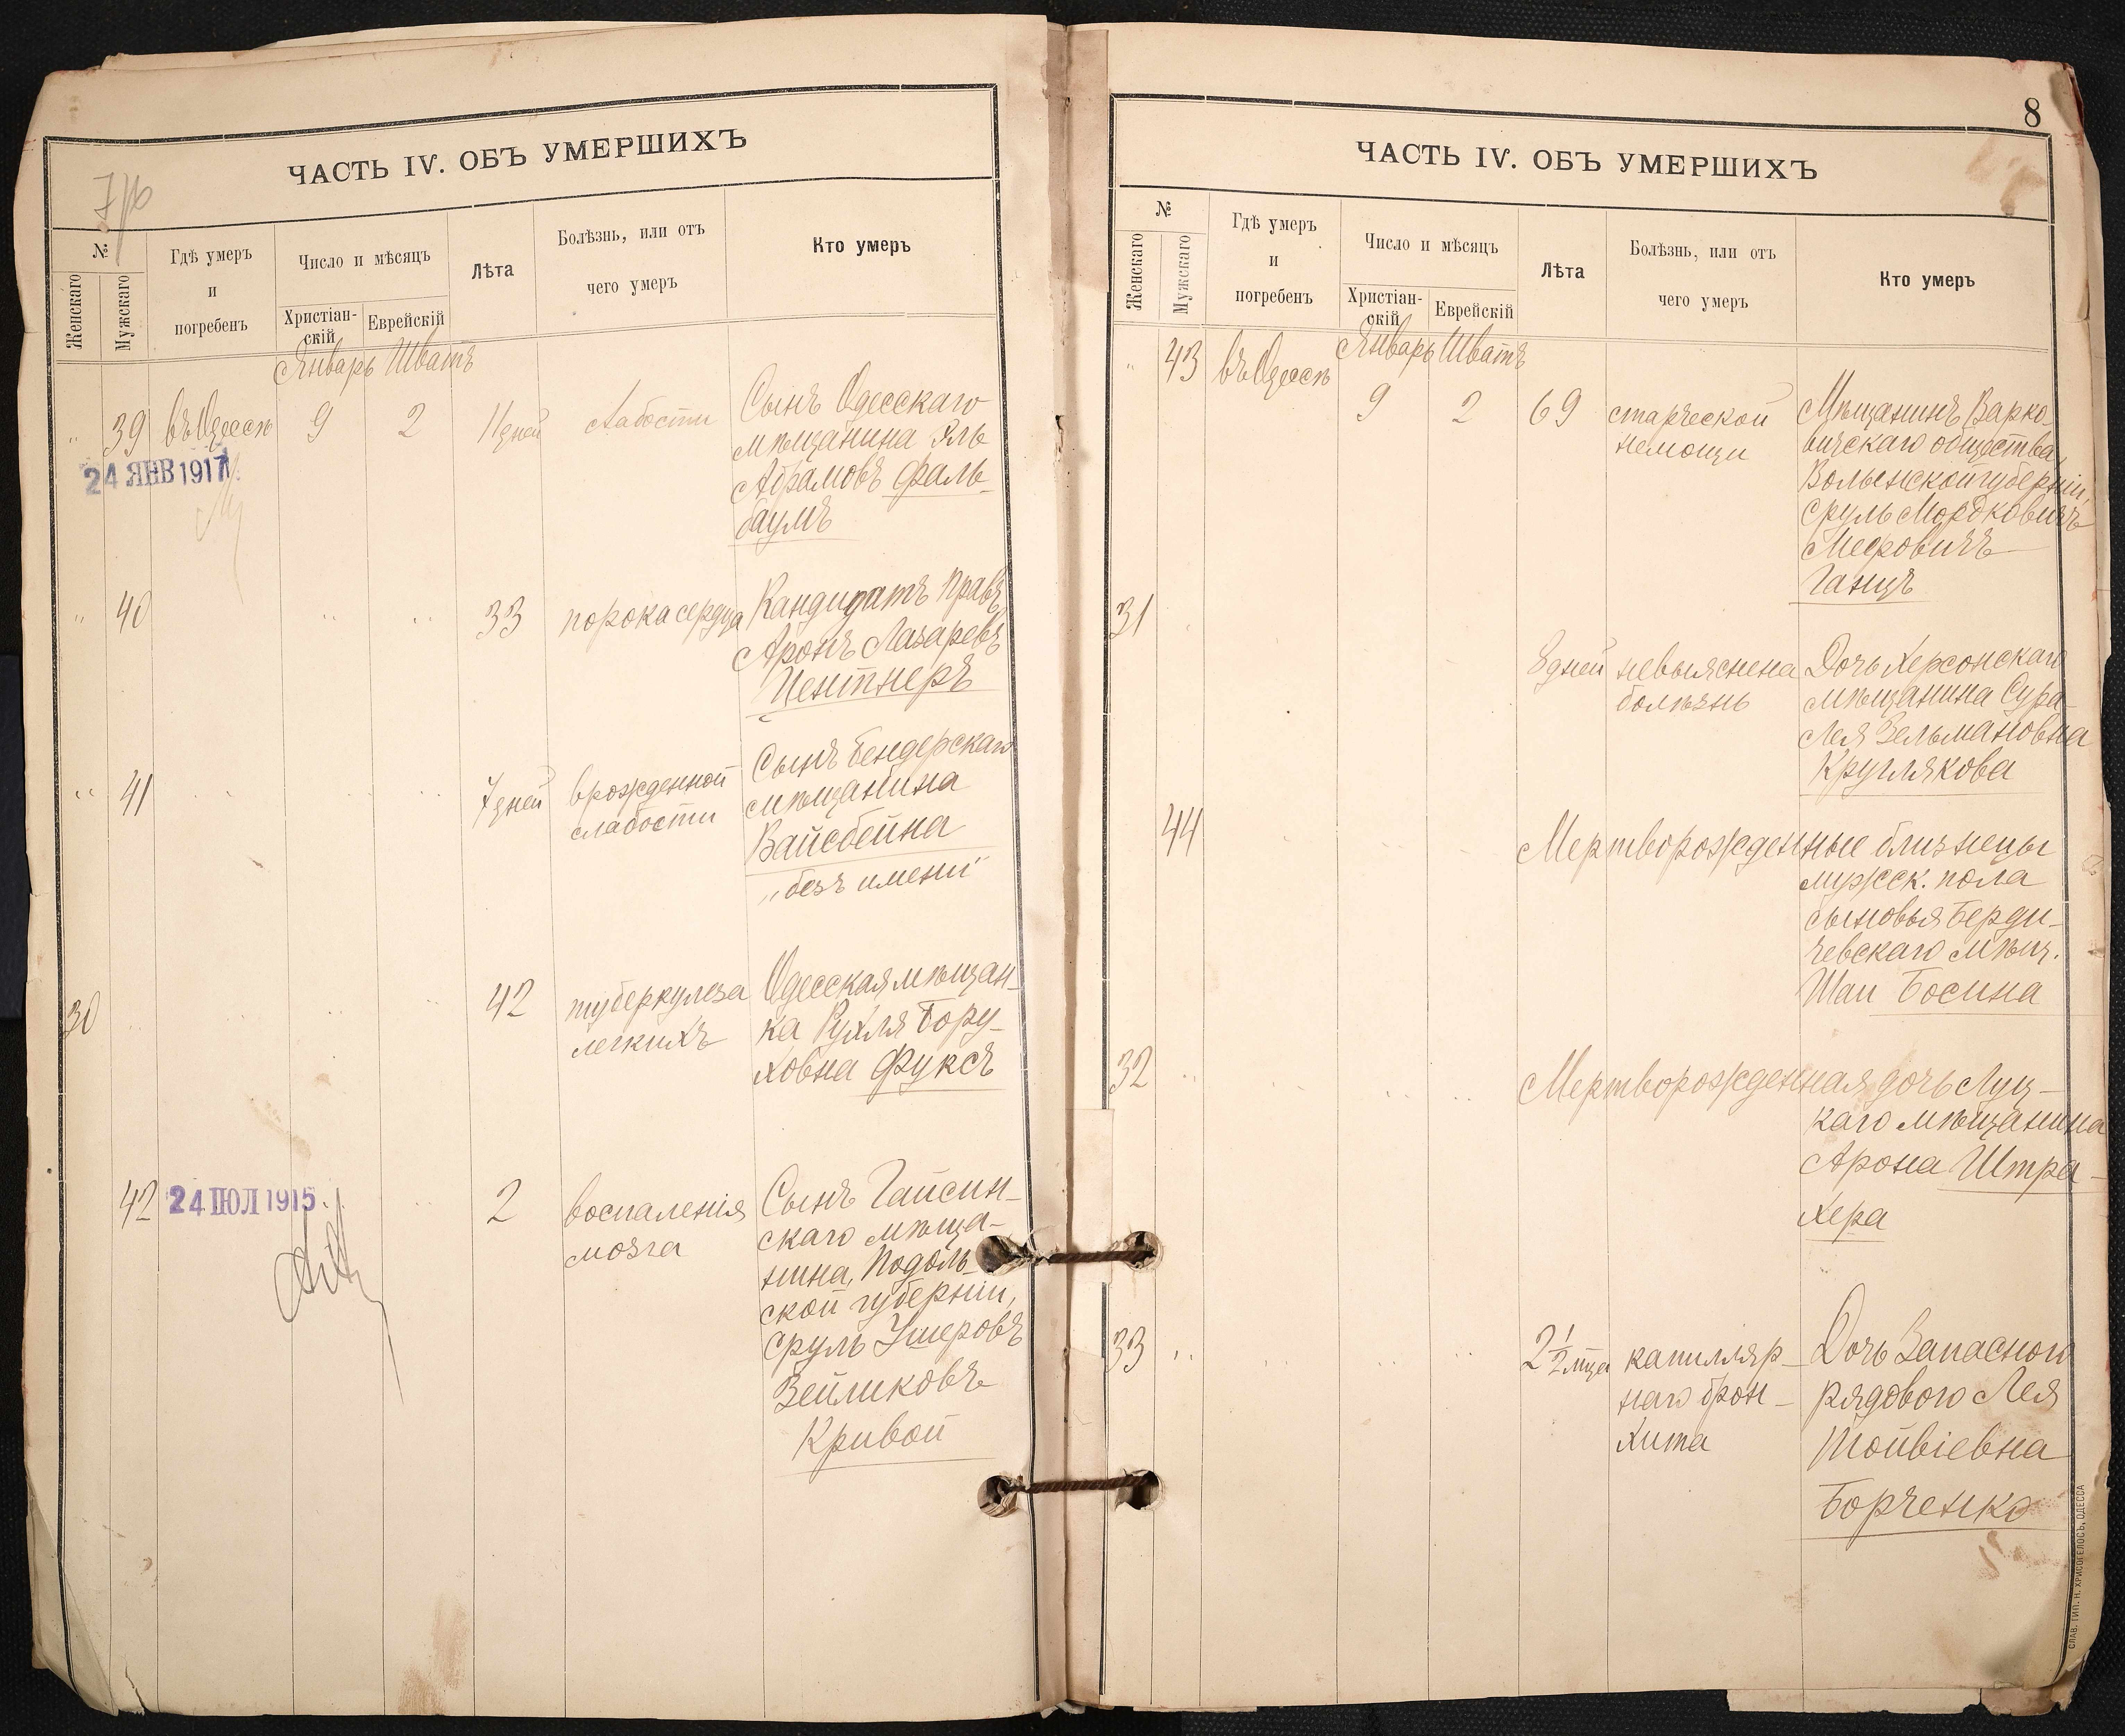 ЧАСТЬ IV. ОБЪ УМЕРШИХЪ
№
Женскаго
Мужскаго
Гдѣ умеръ
и
погребенъ
Число и мѣсяцъ
Христіан-
скій
Еврейскій
Лѣта
Болѣзнь, или отъ
чего умеръ
Кто умеръ
Январь Шватъ
" 39 въ Одессѣ 9 2 11 дней слабости Сынъ Одесскаго
мѣщанина Яль
Абрамовъ Фаль-
баумъ
24 ЯНВ 1917
" 40 " " 33 порока сердца Кандидатъ Правъ
Аронъ Лазаревъ
Центнеръ
" 41 " " 7 дней врожденной Сынъ Бендерскаго
слабости мѣщанина
Вайсбейна
„безъ имени"
30 42 туберкулеза Одесская мѣщан-
легкихъ ка Рухля Бору-
ховна Фуксъ
42 24 ІЮЛ 1915 2 воспаленія Сынъ Гайсин-
мозга скаго мѣща-
нина, Подоль-
ской губерніи,
Сруль Ушеровъ
Зейликовъ
Кривой
8
ЧАСТЬ IV. ОБЪ УМЕРШИХЪ
№
Женскаго
Мужскаго
Гдѣ умеръ
и
погребенъ
Число и мѣсяцъ
Христіан-
скій
Еврейскій
Лѣта
Болѣзнь, или отъ
чего умеръ
Кто умеръ
Январь Шватъ
" 43 въ Одессѣ 9 2 69 старческой Мѣщанинъ Варко-
немощи вичскаго общества,
Волынской губерніи,
Сруль Мордковичъ
Мееровичъ
Ганцъ
31 8 дней невыяснена Дочь Херсонскаго
болѣзнь мѣщанина Сура-
Лея Зельмановна
Круглякова
44 Мертворожденные близнецы
мужск. пола
сыновья Берди-
чевскаго мѣщ.
Шаи Босина
32 Мертворожденная дочь Луц-
каго мѣщанина
Арона Штра-
хера
33 2 1/2 мца капилляр- Дочь Запасного
наго брон- рядового Лея
хита Тойвіевна
Борченко
СЛАВ. ТИП. Н. ХРИСОГЕЛОСЪ, ОДЕССА